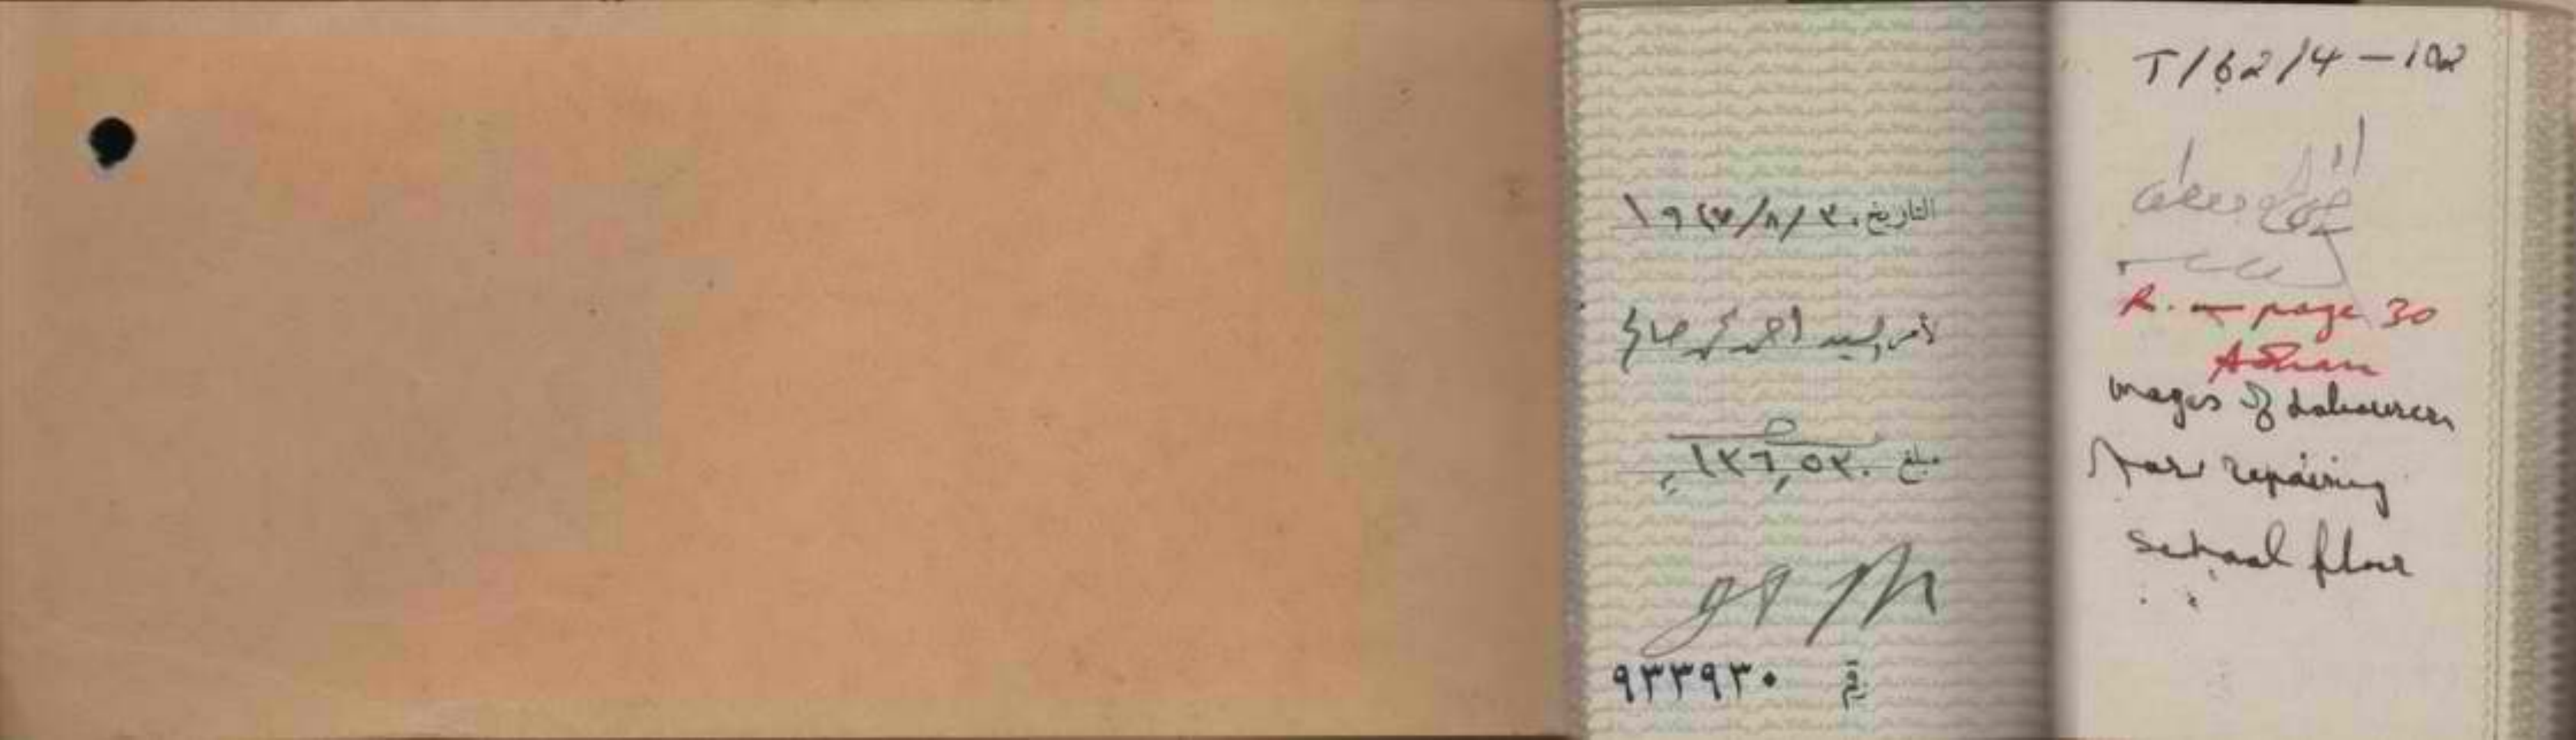 التاريخ ١٩٦٧/٨/٣٠
لأمر السيد احمد محمد صالح
مبلغ ١٣٦,٥٣٠
رقم ٩٣٣٩٣٠
T/62/4-102
R. page 30
Adnan
wages of Labourers
for repairing
school floor